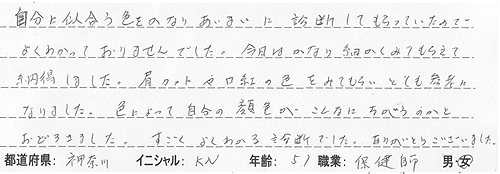 自分に似合う色をかなりあいまいに診断してもらっていたので
よくわかっておりませんでした。今日はかなり細かくみてもらえて
納得しました。眉カットや口紅の色をみてもらいとても参考に
なりました。色によって自分の顔色がこんなにちがうのかと
おどろきました。すごくよくわかる診断でした。ありがとうございました。
都道府県: 神奈川 イニシャル: KN 年齢: 51 職業: 保健師 男・女